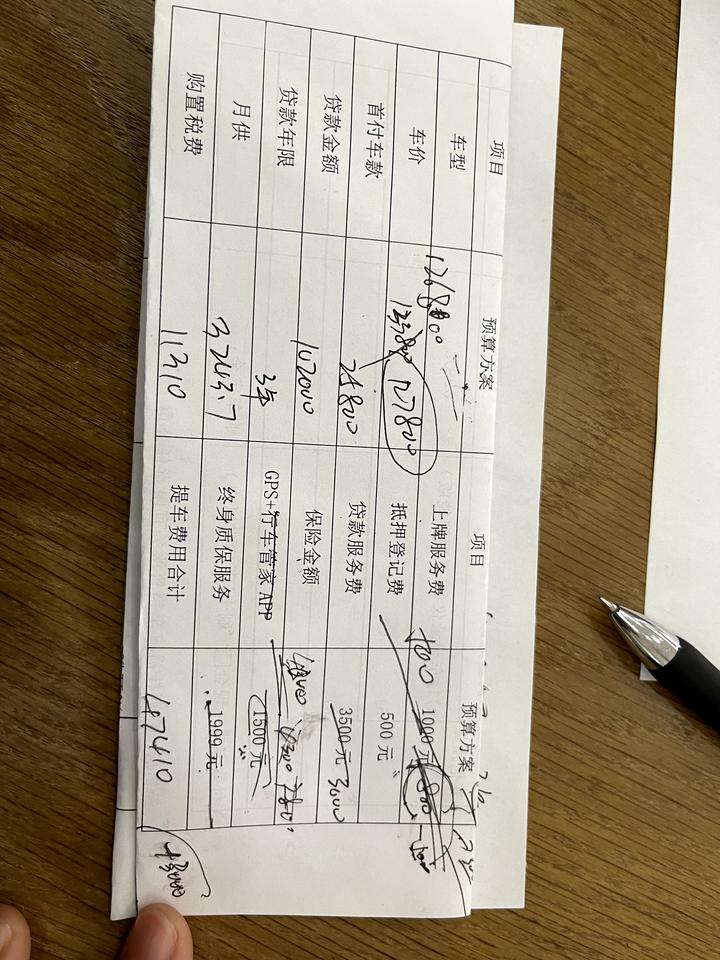 项目 预算方案 项目 预算方案
车型 126800 上牌服务费 1000元 800
车价 133800 127800 抵押登记费 500元
首付车款 25800 贷款服务费 3500元 3000
贷款金额 102000 保险金额 7800
贷款年限 3年 GPS+行车管家APP 1500元
月供 3243.7 终身质保服务 1999元
购置税费 11310 提车费用合计 47410
+3000